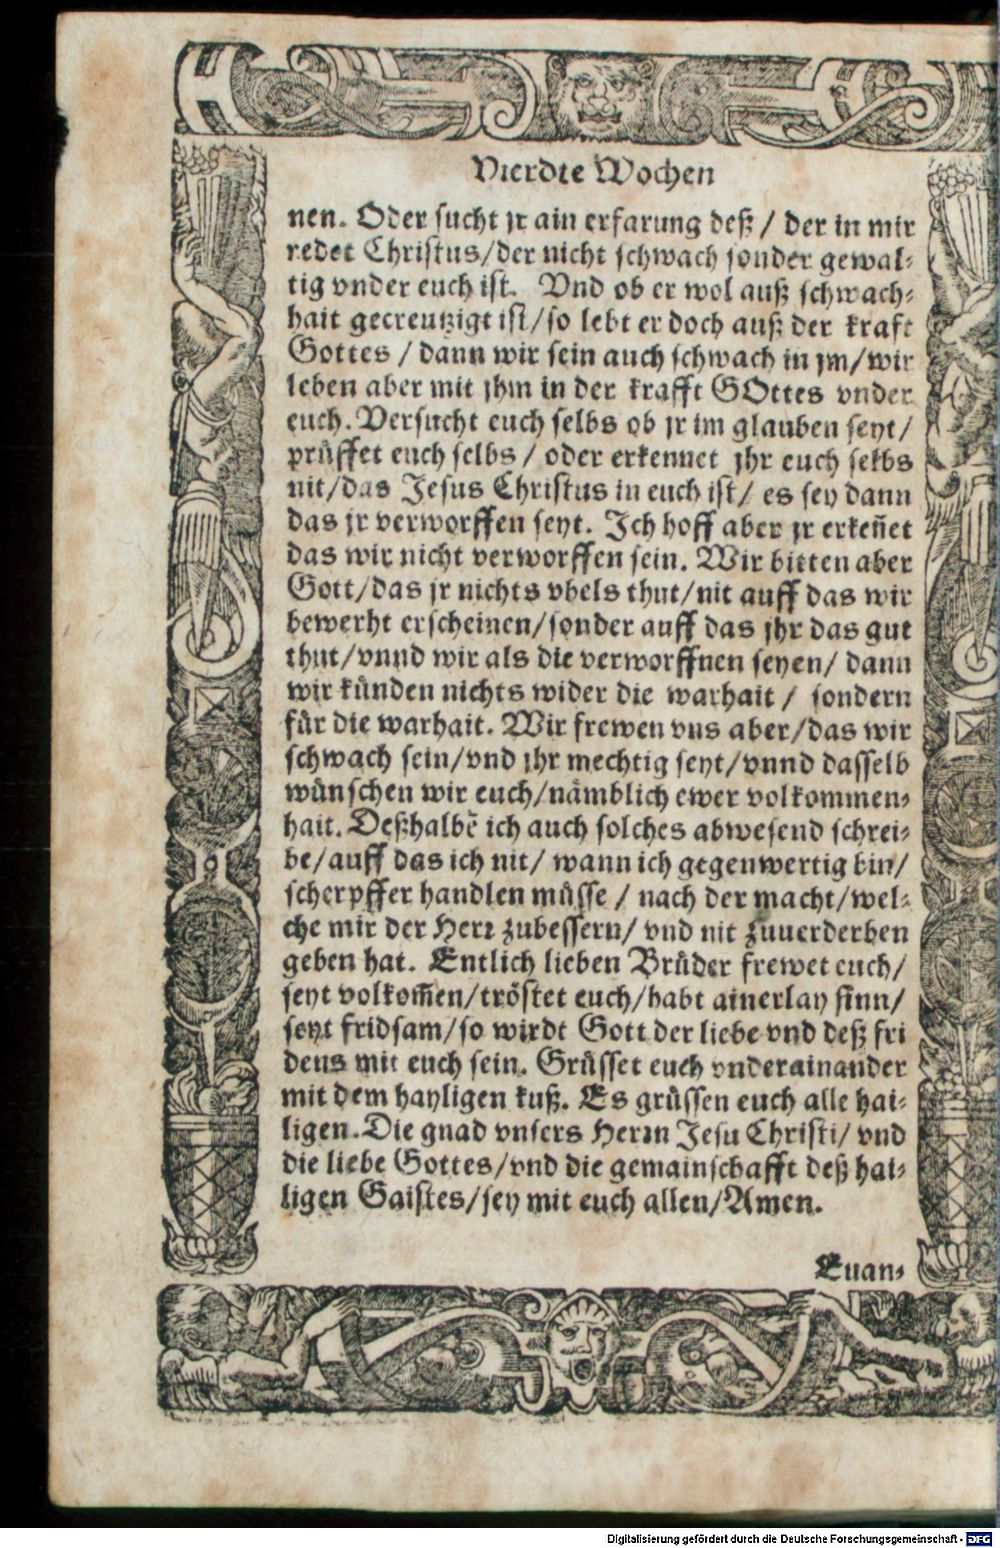 Vierdte Wochen
nen. Oder sucht jr ain erfarung deß / der in mir
redet Christus/der nicht schwach sonder gewal-
tig vnder euch ist. Vnd ob er wol auß schwach-
hait gecreutzigt ist/so lebt er doch auß der kraft
Gottes / dann wir sein auch schwach in jm/wir
leben aber mit jhm in der krafft GOttes vnder
euch. Versucht euch selbs ob jr im glauben seyt/
prüffet euch selbs / oder erkennet jhr euch selbs
nit/das Jesus Christus in euch ist/ es sey dann
das jr verworffen seyt. Ich hoff aber jr erkeñet
das wir nicht verworffen sein. Wir bitten aber
Gott/das jr nichts vbels thut/nit auff das wir
bewerht erscheinen/sonder auff das jhr das gut
thut/vnnd wir als die verworffnen seyen/ dann
wir künden nichts wider die warhait / sondern
für die warhait. Wir frewen vns aber/das wir
schwach sein/vnd jhr mechtig seyt/vnnd dasselb
wünschen wir euch/nämblich ewer volkommen-
hait. Deßhalbẽ ich auch solches abwesend schrei-
be/auff das ich nit/ wann ich gegenwertig bin/
scherpffer handlen müsse / nach der macht/wel-
che mir der Herr zubessern/ vnd nit zuuerderben
geben hat. Entlich lieben Brüder frewet euch/
seyt volkom̃en/tröstet euch/habt ainerlay sinn/
seyt fridsam/so wirdt Gott der liebe vnd deß fri
dens mit euch sein. Grüsset euch vnderainander
mit dem hayligen kuß. Es grüssen euch alle hai-
ligen. Die gnad vnsers Herrn Jesu Christi/ vnd
die liebe Gottes/vnd die gemainschafft deß hai-
ligen Gaistes/sey mit euch allen/Amen.
Euan-
Digitalisierung gefördert durch die Deutsche Forschungsgemeinschaft - DFG